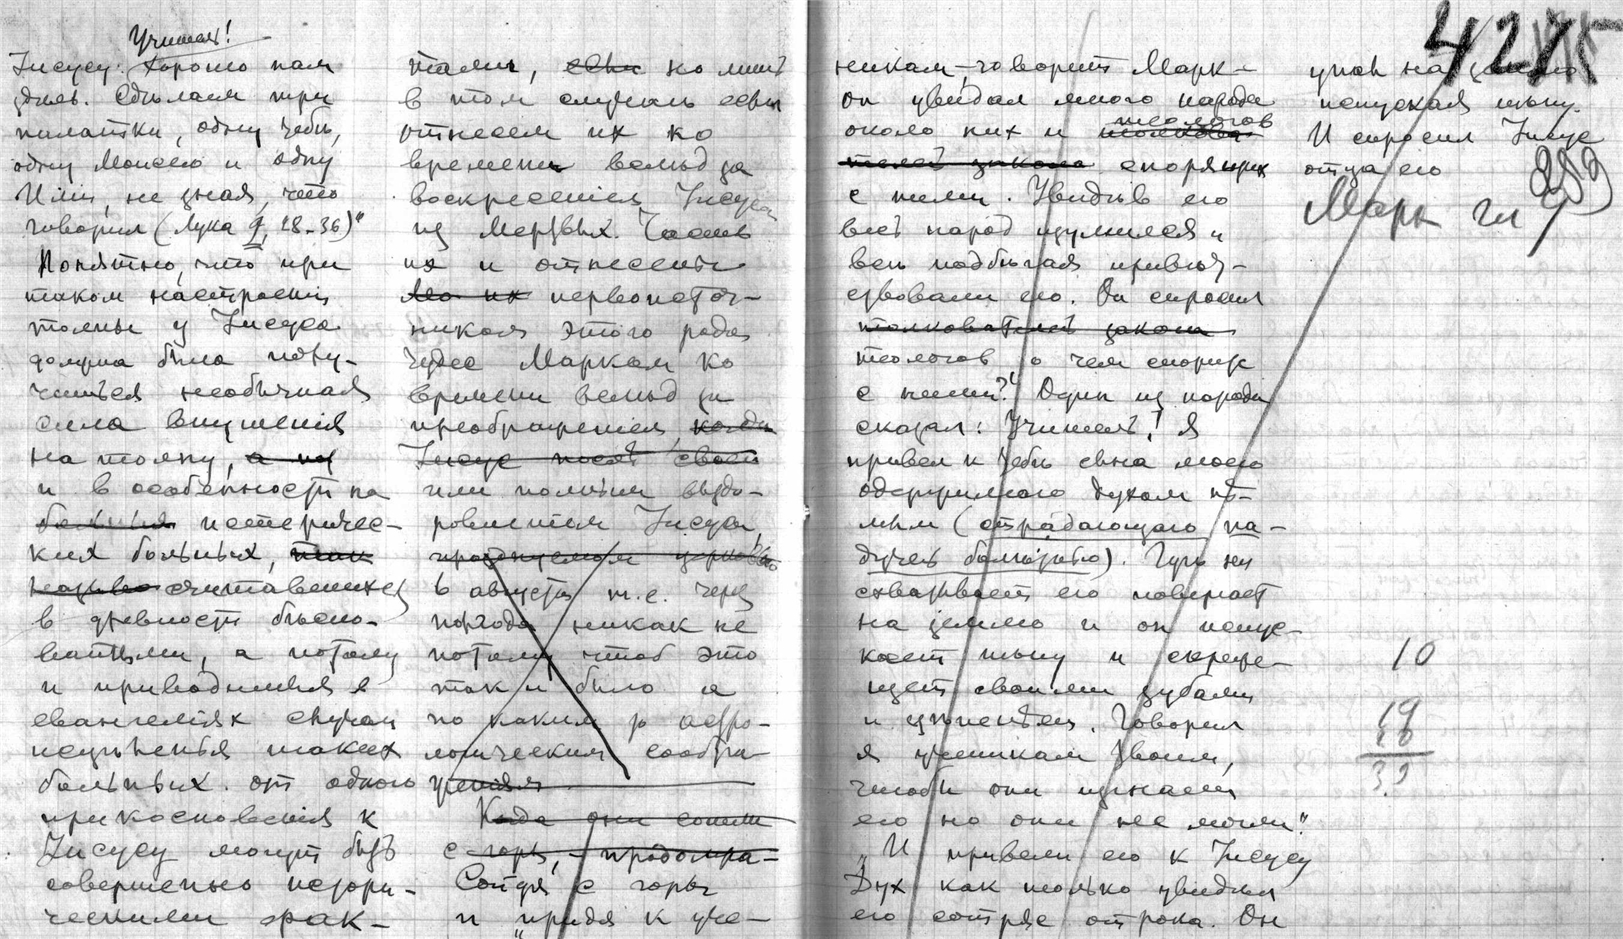 Учитель!
Іисусу: Хорошо нам
здѣсь. Сдѣлаем три
палатки, одну тебѣ,
одну Моисею и одну
Иліи, не зная, что
говорил (Лука 9, 28-36)"
Понятно, что при
таком настроеніи
толпы у Іисуса
должна была полу-
читься необычная
сила внушенія
на толпу, а на
и в особенности на
больных истеричес-
ких больных,
считавшихся
в древности бѣсно-
ватыми, а потому
и приводимые в
евангеліях случаи
исцѣленья таких
больных от одного
прикосновенія к
Іисусу могут быть
совершенно истори-
ческими фак-
тами, если но лишь
в том случаѣ если
отнесем их ко
времени вслѣд за
воскресеніем Іисуса
из мертвых.
их и отнесены
первоисточ-
ником этого рода
чудес Марком ко
времени вслѣд за
преображеніем, когда
Іисус послѣ своего
или полным выздо-
ровленіем Іисуса,
празднуемым церковью
в августѣ, т.е. через
полгода никак не
потому чтоб это
так и было а
по каким то астро-
логическим сообра-
женіям
Когда они сошли
с горы, — продолжа-
Сойдя с горы
и „придя к уче-
никам, — говорит Марк —
он увидал много народа
теологов
около них и толкова-
телей закона спорящих
с ними. Увидѣв его
весь народ изумился и
весь подбѣгая привѣт-
ствовали его. Он спросил
толкователей закона
теологов о чем спорите
с ними? Один из народа
сказал: Учитель! Я
привел к тебѣ сына моего
одержимого духом нѣ-
мым (страдающаго па-
дучей болѣзнью). Гдѣ ни
схватывает его повергает
на землю и он испус-
кает пѣну и скреже-
щет своими зубами
и цѣпенѣет. Говорил
я ученикам Твоим,
чтобы они изгнали
его но они не могли."
„И привели его к Іисусу
Дух как только увидѣл
его сотряс отрока. Он
упал на землю
испуская пѣну.
И спросил Іисус
отца его
Марк гл 9
10
19